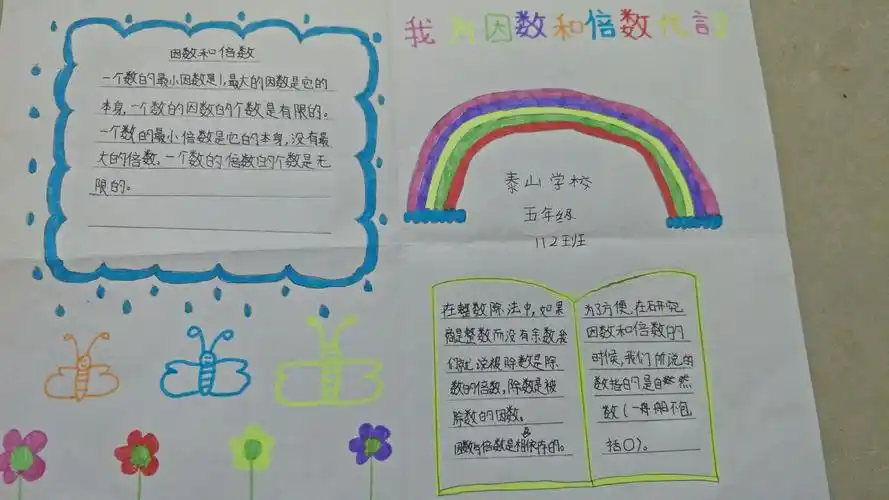 我为因数和倍数代言
因数和倍数
一个数的最小因数是1,最大的因数是它的
本身,一个数的因数的个数是有限的。
一个数的最小倍数是它的本身,没有最
大的倍数,一个数的倍数的个数是无
限的。
泰山学校
五年级
112班
在整数除法中,如果
商是整数而没有余数我
们就说被除数是除
数的倍数,除数是被
除数的因数。
因数与倍数是相依存的。
为了方便,在研究
因数和倍数的
时候,我们所说的
数指的是自然
数(一般不包
括0)。